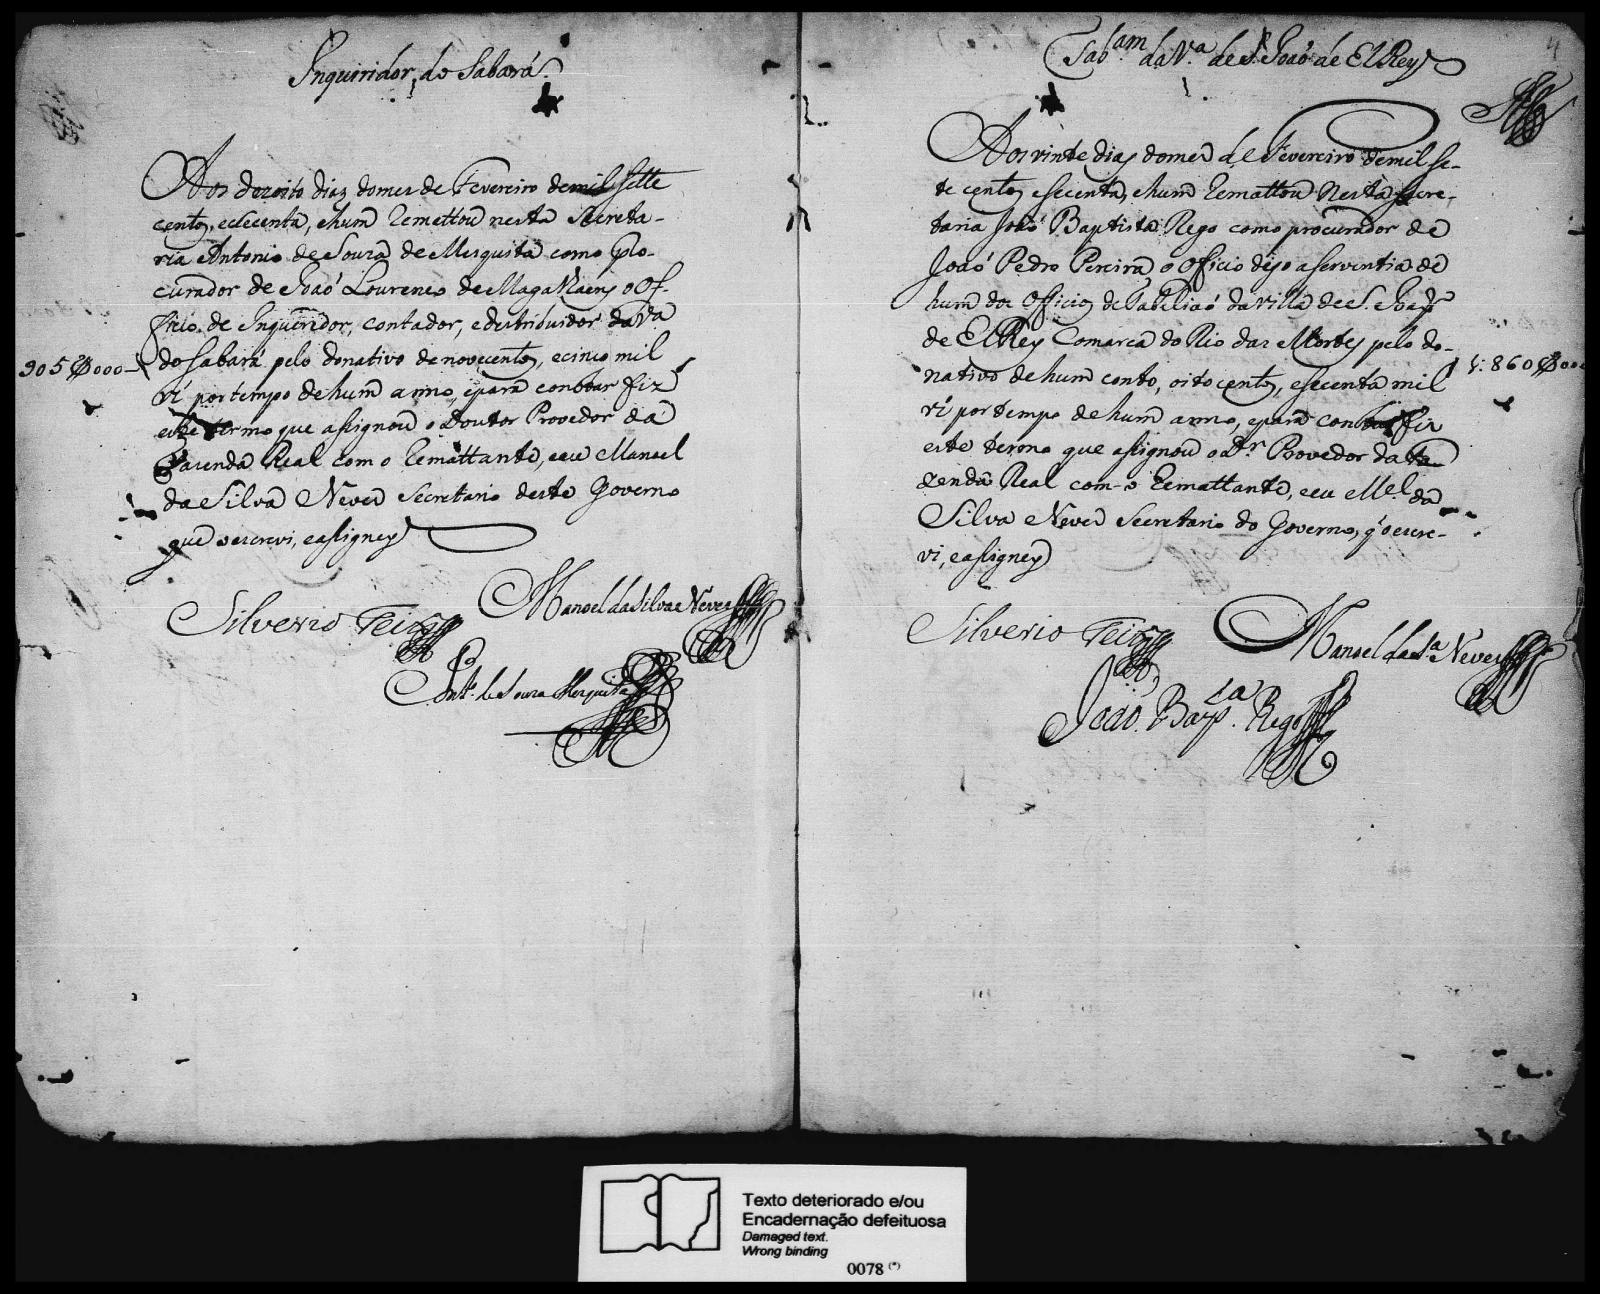 Inquiridor do Sabará
Aos dezoito dias do mes de Fevereiro de mil sette
centos, e secenta, e hum Remettou nesta Secreta-
ria Antonio de Souza de Mesquita como Pro-
curador de Joaõ Lourenco de Magalhaens o Of-
ficio de Inqueridor, contador, e destribuidor da Va
do Sabará pelo donativo de novecentos, e cinco mil
905$000
rs por tempo de hum anno, e para constar fiz
este termo que assignou o Doutor Provedor da
Fazenda Real com o Remattante, e eu Manoel
da Silva Neves Secretario deste Governo
que o escrevi, e assigney
Manoel da Silva Neves
Silverio Teixra
Anto. de Souza Mesquita
4
Tabam. da Va. de S. Joaõ de El Rey
Aos vinte dias do mes de Fevereiro de mil se-
te centos e secenta, e hum Remattou nesta Secre-
taria Joaõ Baptista Rego como procurador de
Joaõ Pedro Pereira o Officio digo a serventia de
hum dos Officios de Tabeliaõ da Villa de S. Joaõ
de El Rey Comarca do Rio das Mortes pelo do-
nativo de hum conto, oitocentos, e secenta mil
1:860$000
rs por tempo de hum anno, e para constar fiz
este termo que assignou o Dr. Provedor da Fa
zenda Real com o Remattante, e eu Mel. da
Silva Neves Secretario do Governo, q o escre-
vi, e assigney
Silverio Teixra
Manoel da Sa Neves
Joaõ Bapta. Rego
Texto deteriorado e/ou
Encadernação defeituosa
Damaged text.
Wrong binding
0078 (*)